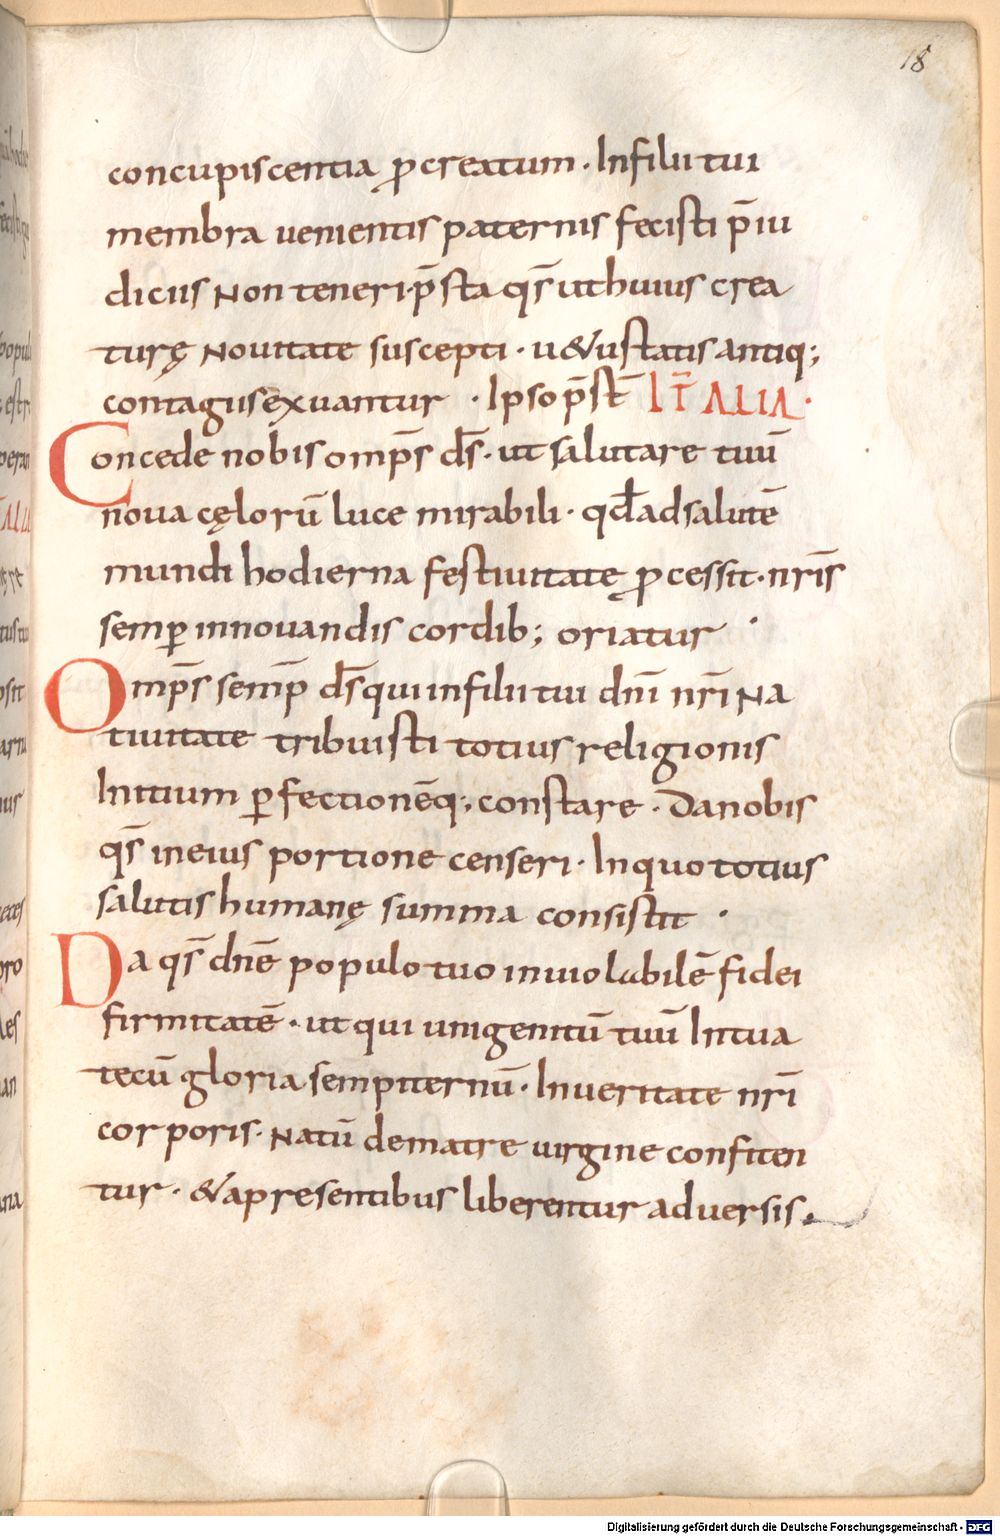 18
concupiscentia p̄creatum · Infilii tui
membra uenientis paternis fecisti p̄iu
diciis Non teneri· p̄sta qs̄ ut huius crea
turę Nouitate suscepti · u&ustatis antiq;
contagiis exuantur · Ipso p̄st̄ IT̄ ALIA·
Concede nobis omp̄s ds̄ · ut salutare tuū
noua cęlorū luce mirabili · qđ ad salutē
mundi hodierna festiuitate p̄cessit · nr̄is
semp̱ innouandis cordib; oriatur ·
Omp̄s semp̄ ds̄ qui infilii tui dnī nr̄i Na
tiuitate tribuisti totius religionis
Initium p̱fectionēq; constare · Da nobis
qs̄ in eius portione censeri · In quo totius
salutis humanę summa consistit ·
Da qs̄ dnē populo tuo inuiolabilē fidei
firmitatē · ut qui unigenitū tuū In tua
tecū gloria sempiternū · In ueritate nr̄i
corporis · Natū de matre uirgine confiten
tur · & apresentibus liberentur aduersis.
Digitalisierung gefördert durch die Deutsche Forschungsgemeinschaft - DFG